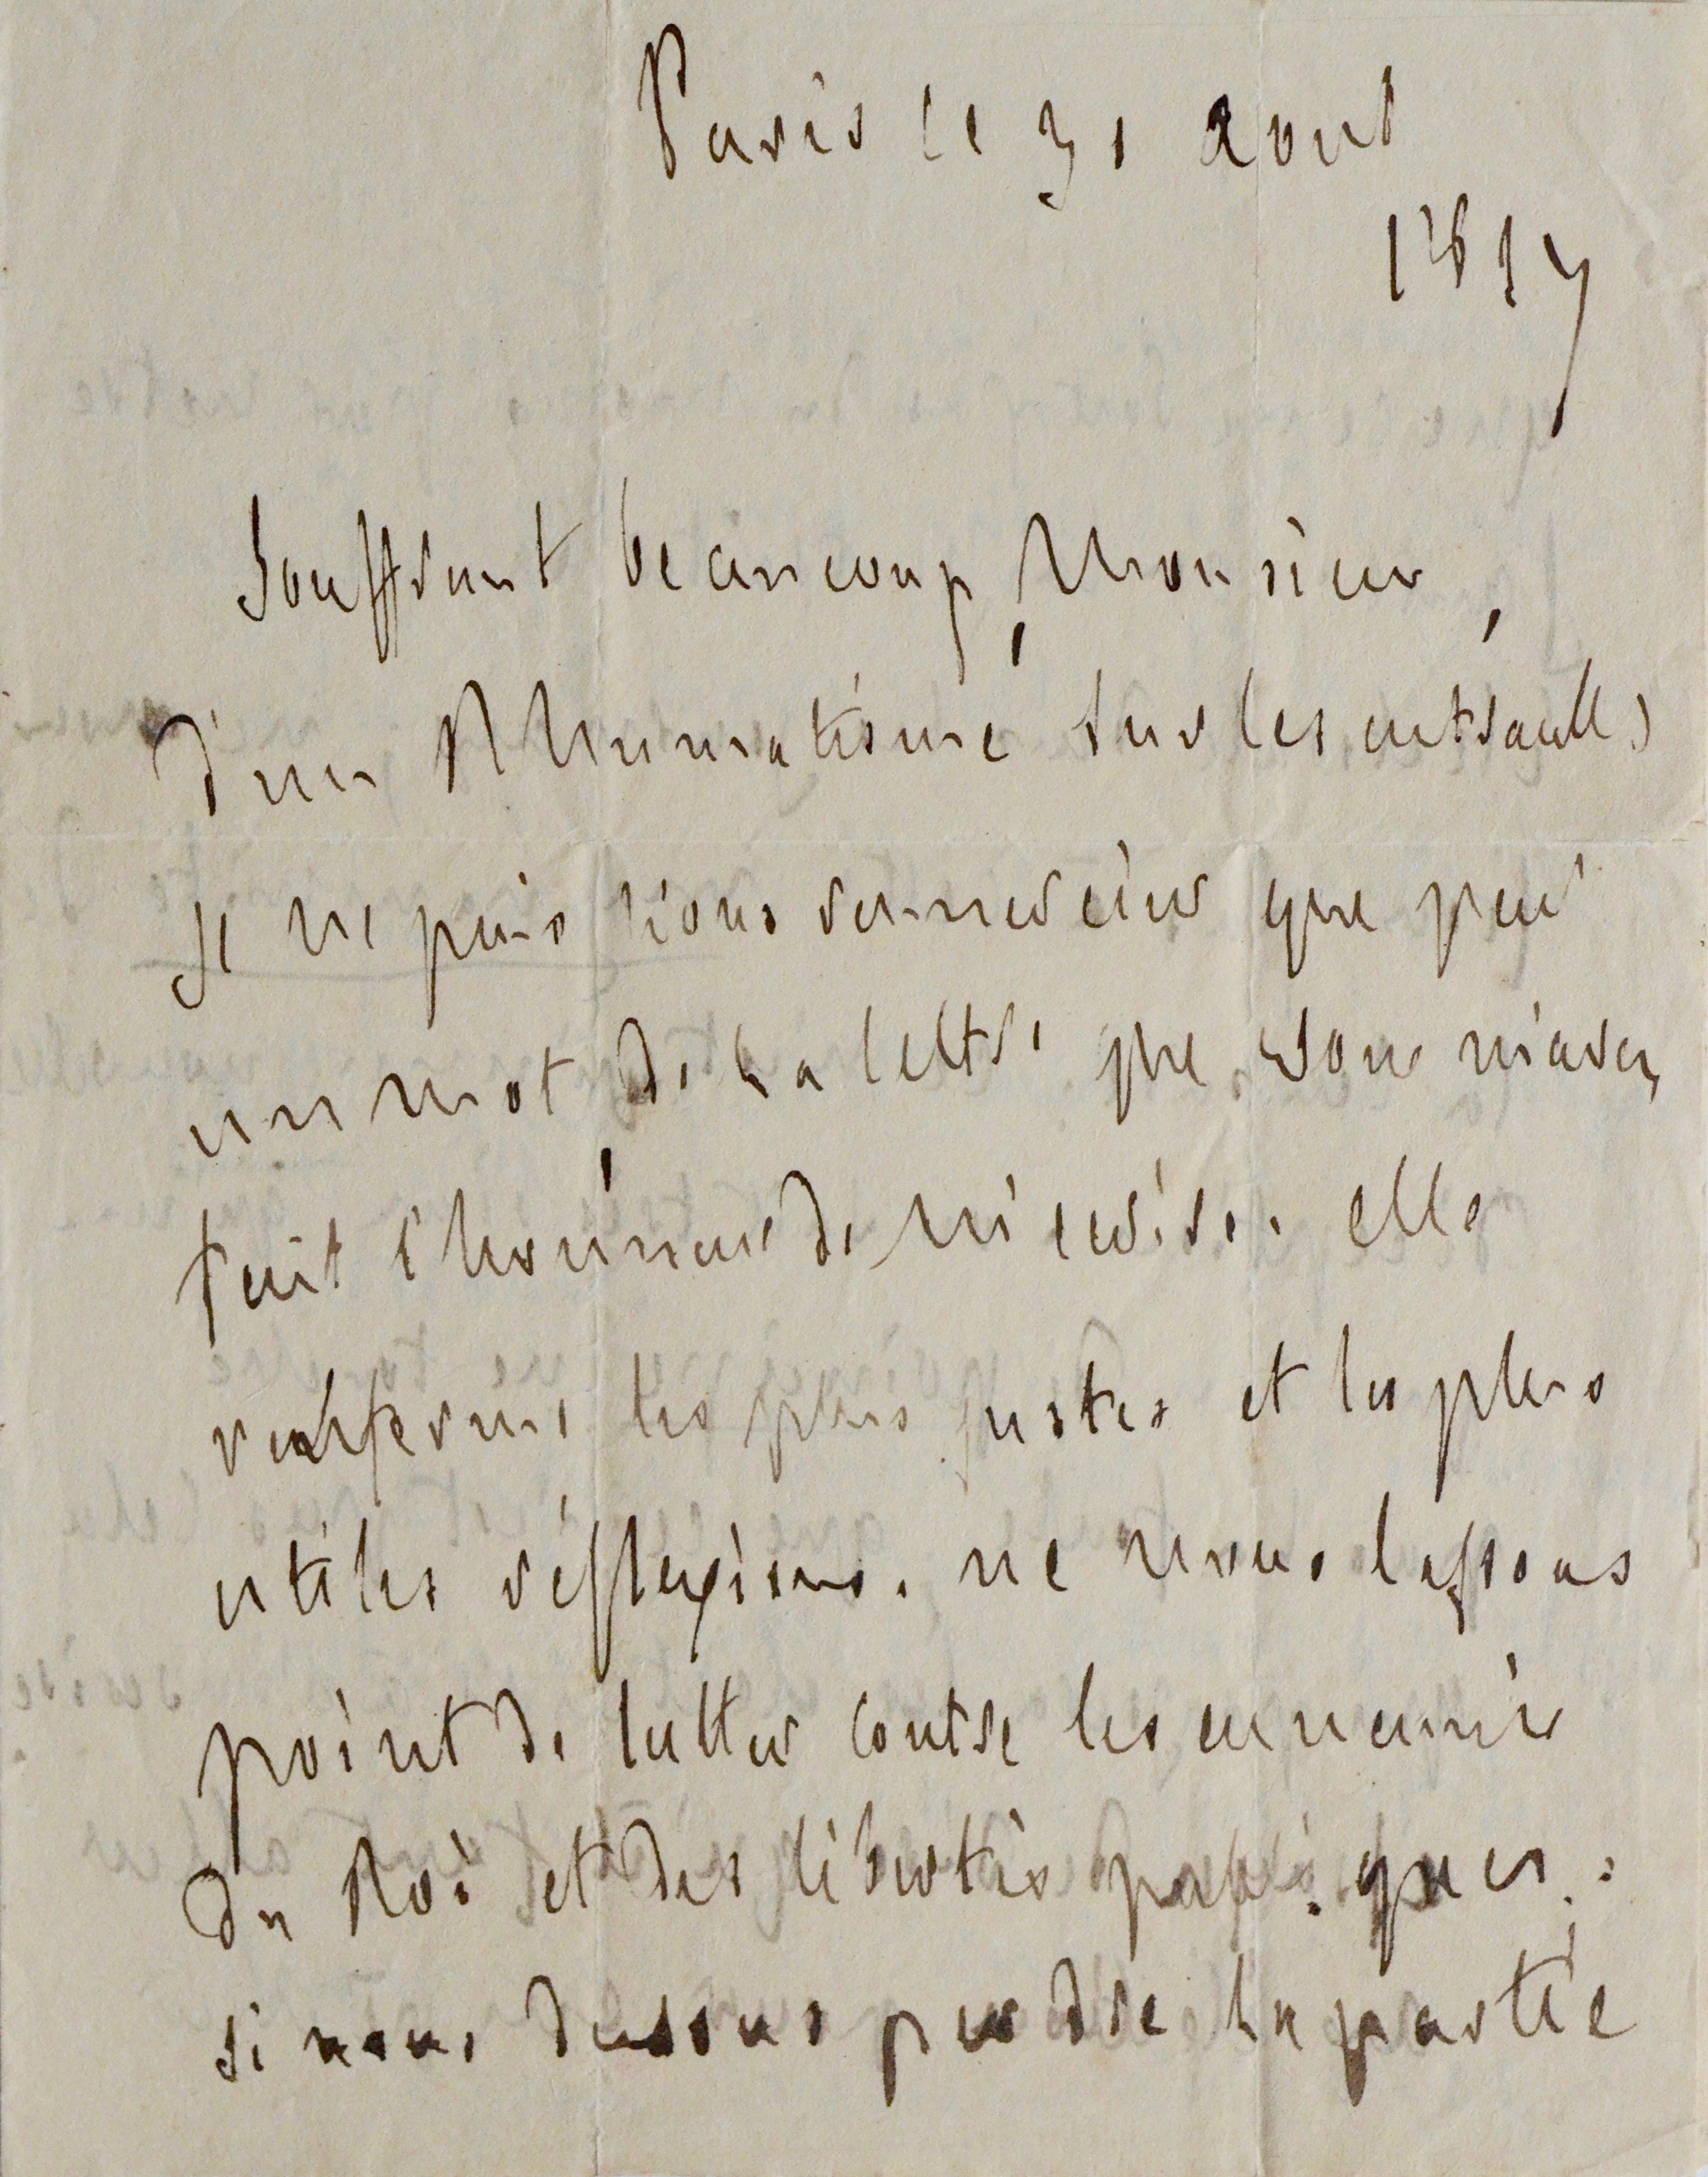 Paris le 31 aout
1827
Souffrant beaucoup, Monsieur,
d'un Rhumatisme sur les entrailles
je ne puis vous remercier que par
un mot, de la lettre que vous m'avez
fait l'honneur de m'ecrire. elle
renferme les plus justes et les plus
utiles réflexions. ne nous lassons
point de lutter contre les ennemis
du Roi et des libertés publiques :
si nous devons perdre la partie